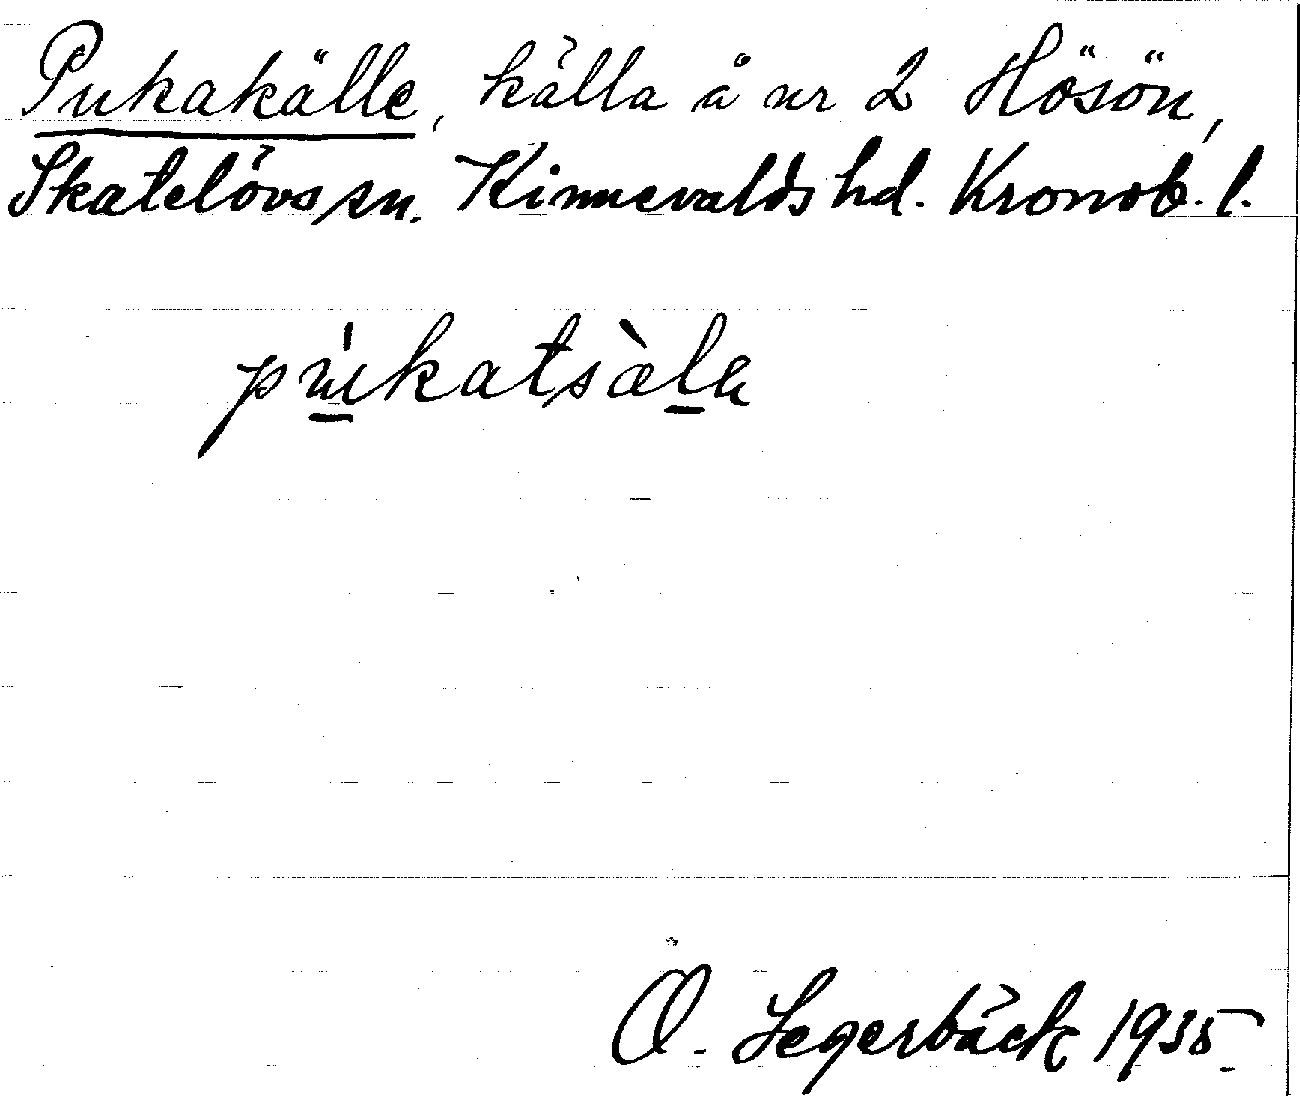 Pukakälle, källa å nr 2 Hösön,
Skatelövs sn. Kinnevalds hd. Kronob. l.
púkatsàla
O. Segerbäck 1935.